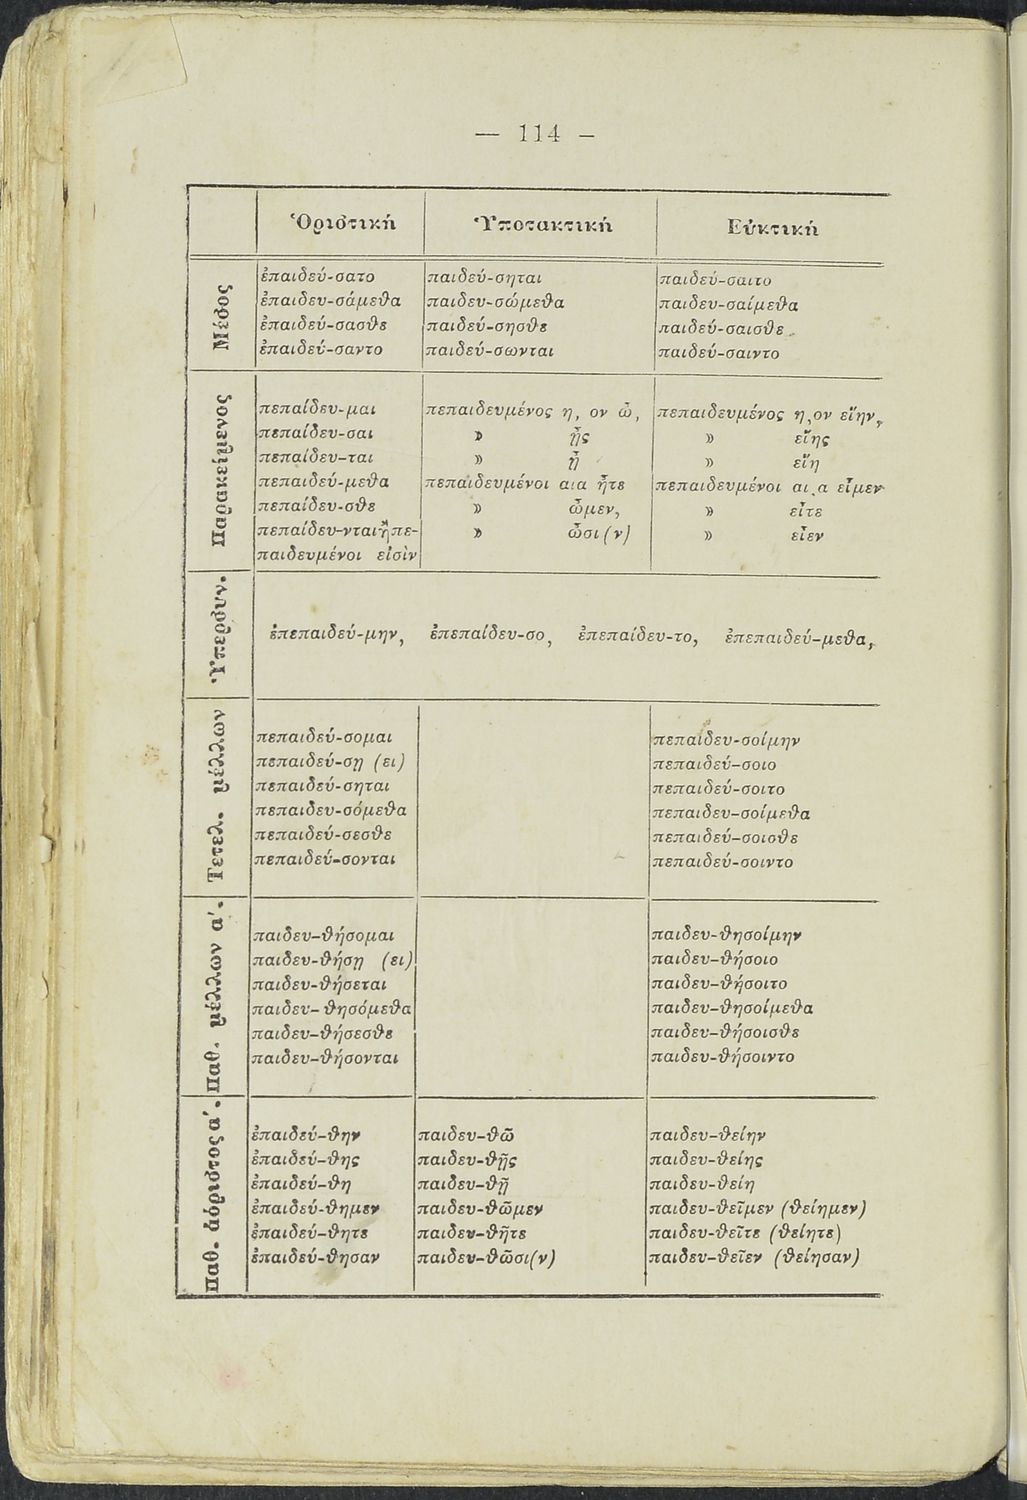 — 114 –
Ὁριστική Ὑποτακτική Εὐκτική
Μέσος
ἐπαιδεύ-σατο παιδεύ-σηται παιδεύ-σαιτο
ἐπαιδευ-σάμεθα παιδευ-σώμεθα παιδευ-σαίμεθα
ἐπαιδεύ-σασθε παιδεύ-σησθε παιδεύ-σαισθε
ἐπαιδεύ-σαντο παιδεύ-σωνται παιδεύ-σαιντο
Παρακείμενος
πεπαίδευ-μαι πεπαιδευμένος η, ον ὦ, πεπαιδευμένος η,ον εἴην,
πεπαίδευ-σαι » ᾖς » εἴης
πεπαίδευ-ται » ᾖ » εἴη
πεπαιδεύ-μεθα πεπαιδευμένοι αια ἦτε πεπαιδευμένοι αι,α εἶμεν
πεπαίδευ-σθε » ὦμεν, » εἶτε
πεπαίδευ-νται ἢ πε- » ὦσι (ν) » εἶεν
παιδευμένοι εἰσὶν
Ὑπερσυν.
ἐπεπαιδεύ-μην, ἐπεπαίδευ-σο, ἐπεπαίδευ-το, ἐπεπαιδεύ-μεθα,
Τετελ. μέλλων
πεπαιδεύ-σομαι πεπαιδευ-σοίμην
πεπαιδεύ-σῃ (ει) πεπαιδεύ-σοιο
πεπαιδεύ-σηται πεπαιδεύ-σοιτο
πεπαιδευ-σόμεθα πεπαιδευ-σοίμεθα
πεπαιδεύ-σεσθε πεπαιδεύ-σοισθε
πεπαιδεύ-σονται πεπαιδεύ-σοιντο
Παθ. μέλλων α΄.
παιδευ-θήσομαι παιδευ-θησοίμην
παιδευ-θήσῃ (ει) παιδευ-θήσοιο
παιδευ-θήσεται παιδευ-θήσοιτο
παιδευ-θησόμεθα παιδευ-θησοίμεθα
παιδευ-θήσεσθε παιδευ-θήσοισθε
παιδευ-θήσονται παιδευ-θήσοιντο
Παθ. ἀόριστος α΄.
ἐπαιδεύ-θην παιδευ-θῶ παιδευ-θείην
ἐπαιδεύ-θης παιδευ-θῇς παιδευ-θείης
ἐπαιδεύ-θη παιδευ-θῇ παιδευ-θείη
ἐπαιδεύ-θημεν παιδευ-θῶμεν παιδευ-θεῖμεν (θείημεν)
ἐπαιδεύ-θητε παιδευ-θῆτε παιδευ-θεῖτε (θείητε)
ἐπαιδεύ-θησαν παιδευ-θῶσι(ν) παιδευ-θεῖεν (θείησαν)